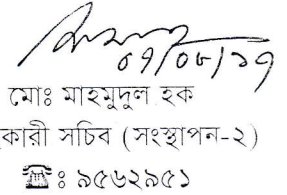 ০৭/০৮/১৭
মোঃ মাহমুদুল হক
কারী সচিব (সংস্থাপন-২)
☎ঃ ৯৫৬২৯৫১